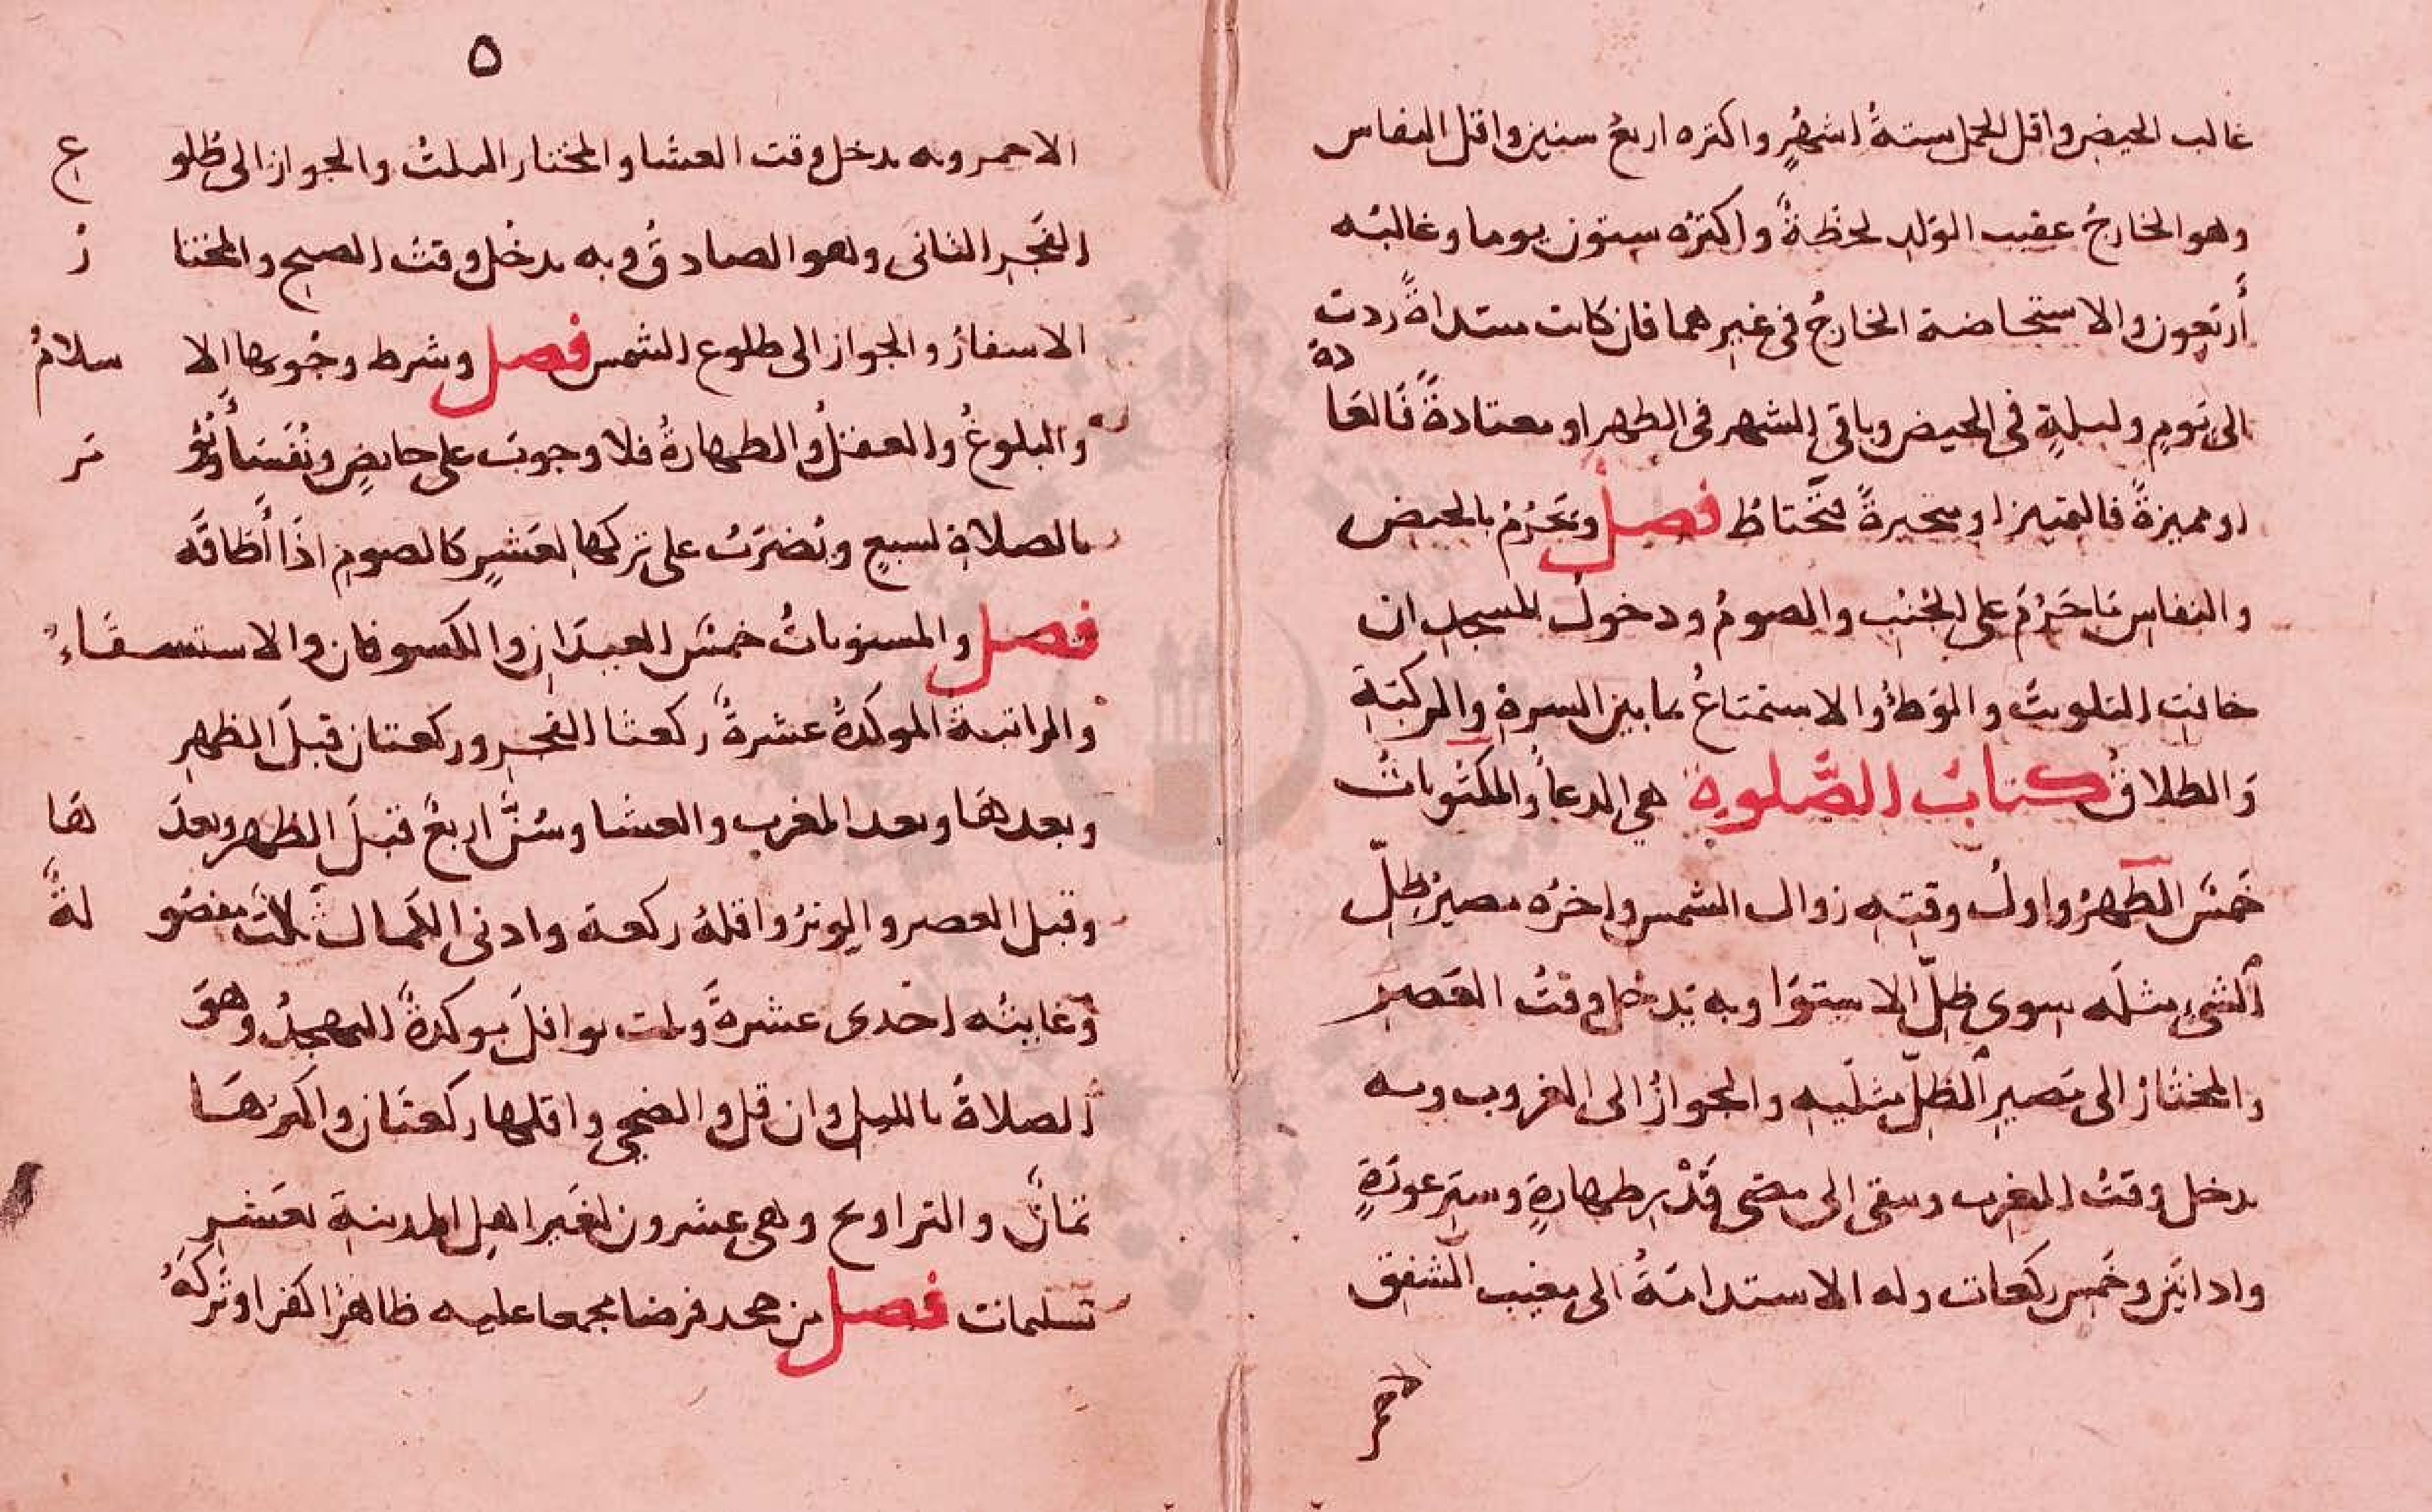 غالب الحيض واقل الحمل ستةُ اشهُرٍ واكثره اربعُ سنين واقل النفاس
وهو الخارجُ عقيب الوَلدِ لحظةٌ واكثرُه ستون يوما وغالبُه
أربَعون والاستحاضة الخارجُ في غيرهما فان كانت مبتداةً ردت
الى يَومٍ وليلةٍ في الحيض وباقي الشهر في الطهر او معتادةً فَالعَا
دة
او مميزةً فالتمييز او متحيرةً فتحتاطُ فصلٌ ويَحرُمُ بالحيض
والنفاس مَا حَرُمَ على الجُنُب والصومُ ودخولُ المسجد ان
خافتِ التلويثَ والوَطْؤُ والاستمتاعُ بما بين السرةِ والركبَةِ
وَالطلاقُ كتابُ الصَّلوة هي الدعاُ والمكتُوباتُ
خَمسٌ الظهرُ واولُ وقتِه زوال الشمس واخرُه مصيرُ ظِلِّ
الشيِ مثلَه سوى ظِلّ الاستِوَا وبه يَدخل وقتُ العَصرِ
والمختَارُ الى مَصيرِ الظِلّ مثلَيه والجوازُ الى الغروب وبه
يدخل وقتُ المغرب ويبقى الى مضى قَدْرِ طهارةٍ وسَترِ عورَةٍ
واذانَين وخَمس ركعات وله الاستدامَةُ الى مغيب الشفق
الاحمر
٥
الاحمر وبه يدخل وقت العشا والمختار الثلثُ والجواز الى طُلو ع
الفَجرِ الثانى وهو الصادقُ وبه يدخُل وقتُ الصبح والمختا رُ
الاسفارُ والجواز الى طلوع الشمس فصل وشرط وجُوبها الا سلامُ
والبلوغُ والعقلُ والطهارةُ فلا وجوبَ على حايضٍ ونُفَسَأ ويُؤ مَر
بالصلاةِ لسبعٍ ويُضرَبُ على تركها لعَشرٍ كالصوم اذَا أَطَاقَه
فصل والمسنوناتُ خمسٌ العيدَان والكسوفان والاستسقَاء
والراتبة الموكدةُ عشرةٌ ركعتا الفجر وركعتان قبلَ الظهرِ
وبعدهَا وبعد المغرب والعشا وسُنَّ اربعٌ قبلَ الظهر وبعدَ هَا
وقبل العصر والوِترُ واقلهُ ركعة وادنى الكمال ثلاثٌ مفصُو لةٌ
وغايتُه احدى عشرةَ وثلث نوافلَ موكدةٌ التهجدُ وهوَ
الصلاةُ بالليل وان قل والضحى واقلها ركعتان واكثرهَا
ثمانٌ والتراويح وهى عشرون لغَير اهل المدينةِ بعَشرِ
تسليمات فصل من جحد فرضا مجمعا عليه ظاهرًا كفر او تَركَهُ